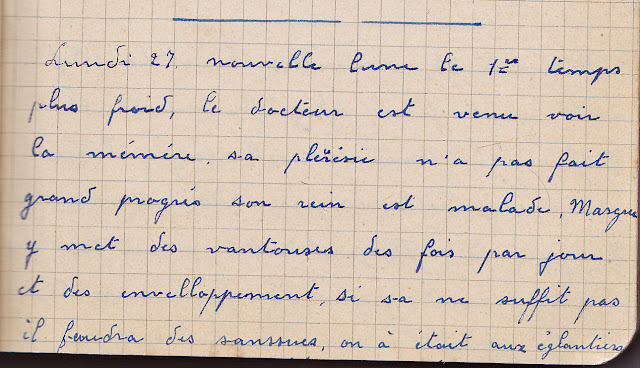 Lundi 27. nouvelle lune le 1er temps
plus froid, le docteur est venu voir
la mémére, sa pleresie n'a pas fait
grand progrés son rein est malade, Margue
y met des vantouses des fois par jour
et des envelloppement, si sa ne suffit pas
il feaudra des sanssues, on à était aux églantiers